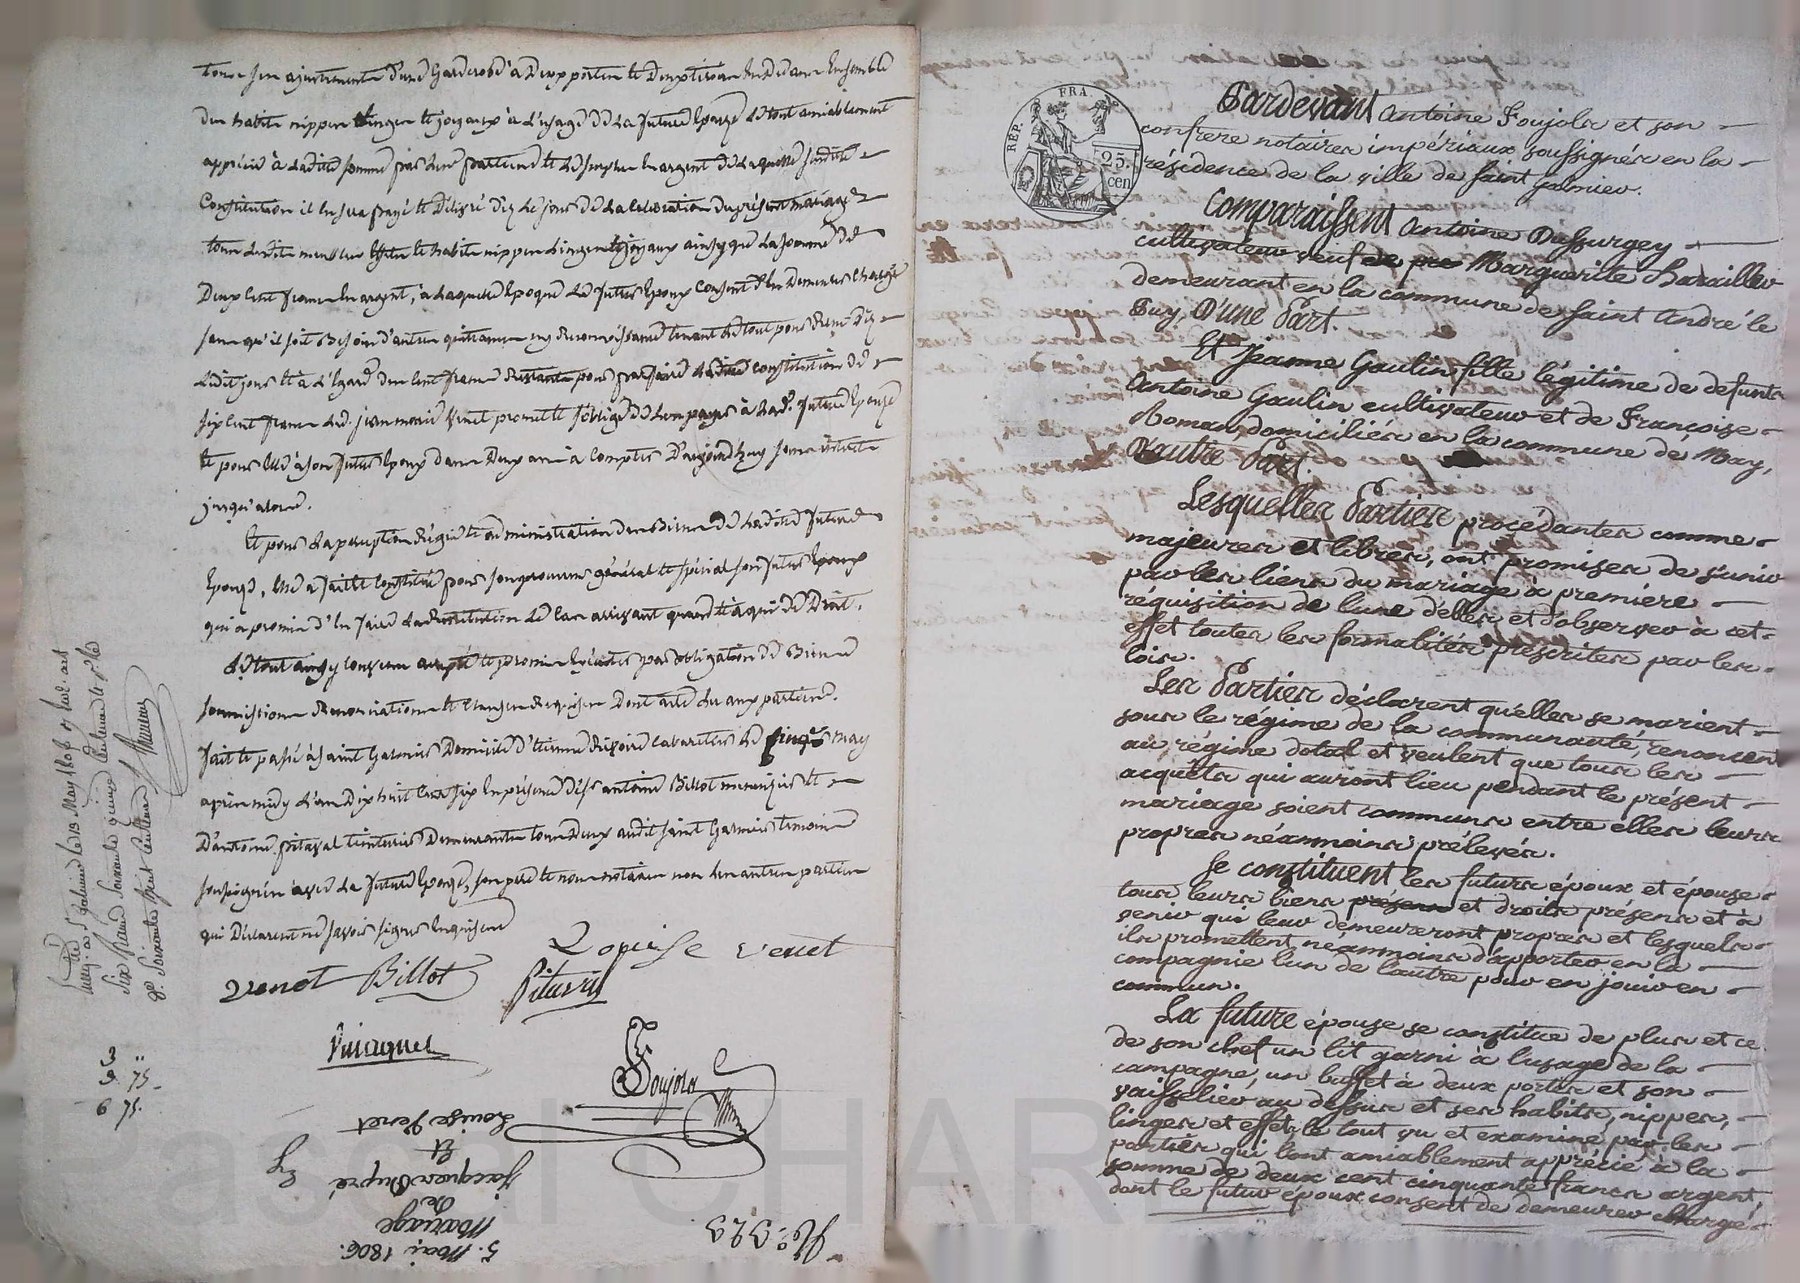 tous ses ajustements d'une Garderobe à Deux portes et Deux tiroirs en Dedans Ensemble
des habits nippes linges et joyaux à L'usage de La future Epouse Le tout amiablement
apprécié à Ladite somme par Les parties et Le surplus en argent de Laquelle susdite
Constitution il en sera payé et Délivré Dez Le jour de La celebration du présent mariage
tous Lesdits meubles effets et habits nippes linges et joyaux ainsy que La somme de
Deux Cent francs en argent, à Laquelle Epoque Le futur Epoux Consent d'En Demeurer Chargé
sans qu'il soit Besoin d'autre quittance ny Reconnoissance tenant Le tout pour Remis Dez
Ledit jour et à L'égard des Cent francs Restants pour parfaire Ladite constitution de
six Cent francs Led. jean marie Venet promet et s'oblige de Les payer à Lad.e future Epouse
et pour Elle à son futur Epoux dans Deux ans à Compter D'aujourd'huy sans intérêts
jusqu'alors.
Et pour La perception Régie et administration des Biens de Ladite future
Epouse, Elle a fait et Constitué pour son procureur général et spécial son futur Epoux
qui a promis d'En faire La Restitution Le Cas arrivant quand et à qui de Droit.
Le tout ainsy convenu accepté et promis Exécuter par obligation de Biens
soumissions Renonciations et Clauses Requises Dont acte Lu aux parties.
fait et passé à Saint Galmier Domicile d'Etienne cabaretier Le Cinq May
après midy L'an Dix huit Cent Six En présence de Sr antoine Billot menuisier et
D'antoine pitaval teinturier Demeurants tous Deux audit Saint Galmier témoins
soussignés avec La future Epouse, son père et nous notaires non Les autres parties
qui Déclarent ne savoir signer Enquises
Louise venet
venet Billot Pitaval
Foujols
3 "
3 75
6 75.
N.º 323
5. Mai 1806.
Mariage
de
Jacques Dupré
Et
Louise Venet
Pardevant Antoine Foujols et son
confrere notaires impériaux soussignés en la
résidence de la ville de Saint Galmier.
RÉP. FRA.
25.
cen
Comparaissent Antoine Dessurgey
cultivateur veuf de Marguerite Barailler
demeurant en la commune de Saint André le
Puy, D'une Part.
Et Jeanne Gaulin fille légitime de défunts
Antoine Gaulin cultivateur et de Françoise
Roman domiciliés en la commune de May,
D'autre Part.
Lesquelles Parties procédantes comme
majeures et libres, ont promises de s'unir
par les liens du mariage à première
réquisition de l'une d'elles et d'observer à cet
effet toutes les formalités prescrites par les
lois.
Les Parties déclarent qu'elles se marient
sous le régime de la communauté, renoncent
au régime dotal et veulent que tous les
acquêts qui auront lieu pendant le présent
mariage soient communs entre elles leurs
propres néanmoins prélevés.
Se constituent les futurs époux et épouse
tous leurs biens présens et droits présens et à
venir qui leur demeureront propres et lesquels
ils promettent néanmoins d'apporter en la
compagnie l'un de l'autre pour en jouir en
commun.
La future épouse se constitue de plus et ce
de son chef un lit garni à l'usage de la
campagne, un buffet à deux portes et son
vaisselier au dessus et ses habits, nippes,
linges et effets le tout vu et examiné par les
parties qui l'ont amiablement apprécié à la
somme de deux cent cinquante francs argent
dont le futur époux consent de demeurer chargé